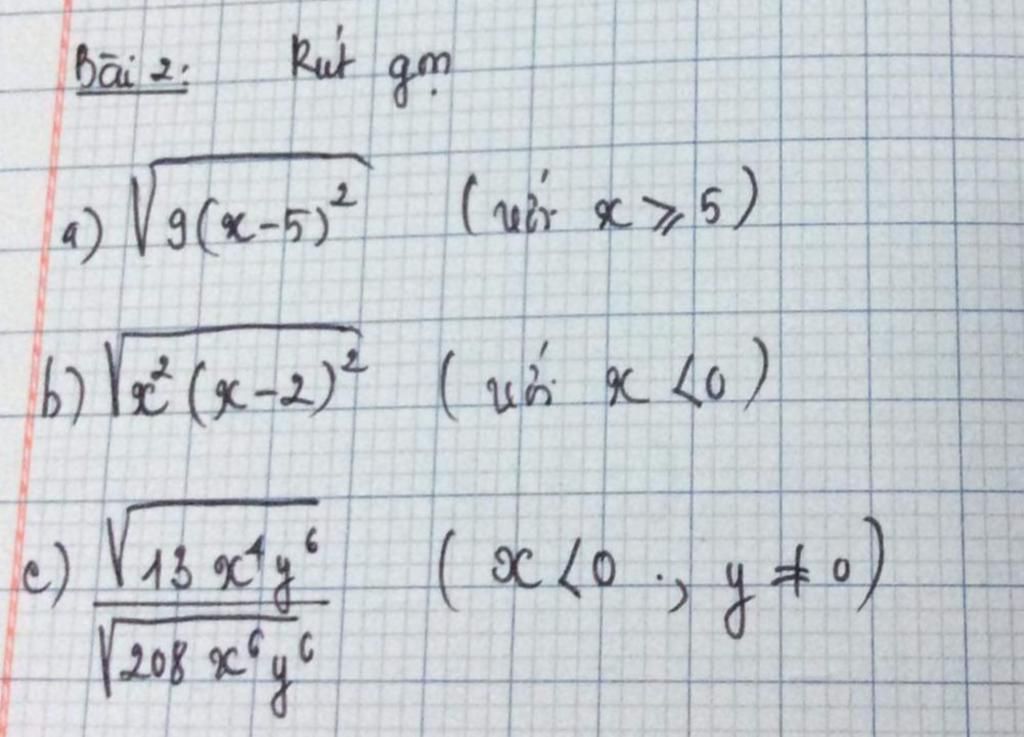 Bài 2: Rút gọn
a) √9(x-5)² (với x ⩾ 5)
b) √x²(x-2)² (với x < 0)
c) √13 x⁴ y⁶ / √208 x⁶ y⁶ (x < 0 , y ≠ 0)